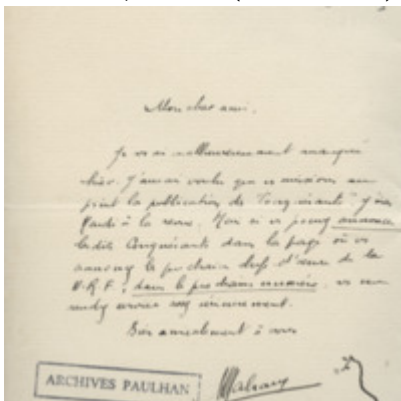 Mon cher ami,
Je vs ai malheureusement manqué
hier. J'aurais voulu que ns missions au
point la publication de Conquérants. J'irai
Mardi à la revue. Mais si vs pouvez annoncer
lesdits Conquérants dans la page où vs
annoncez les prochains chefs d'œuvre de la
N.R.F., dans le prochain numéro, vs me
rendrez service très sincèrement.
Bien amicalement à vous
ARCHIVES PAULHAN
Malraux